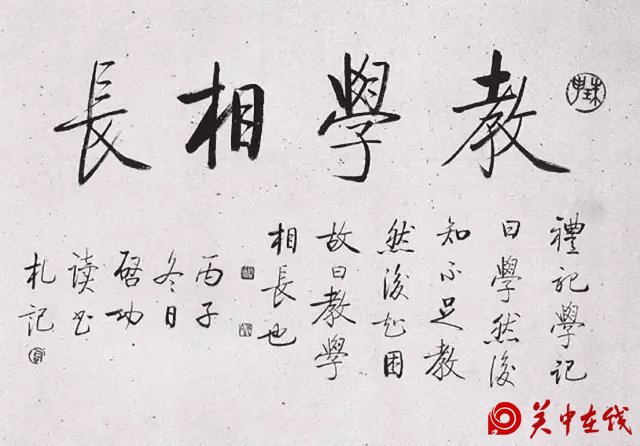 教學相長
禮記學記
曰學然後
知不足教
然後知困
故曰教學
相長也
丙子
冬日
启功
读书
札記
关中在线